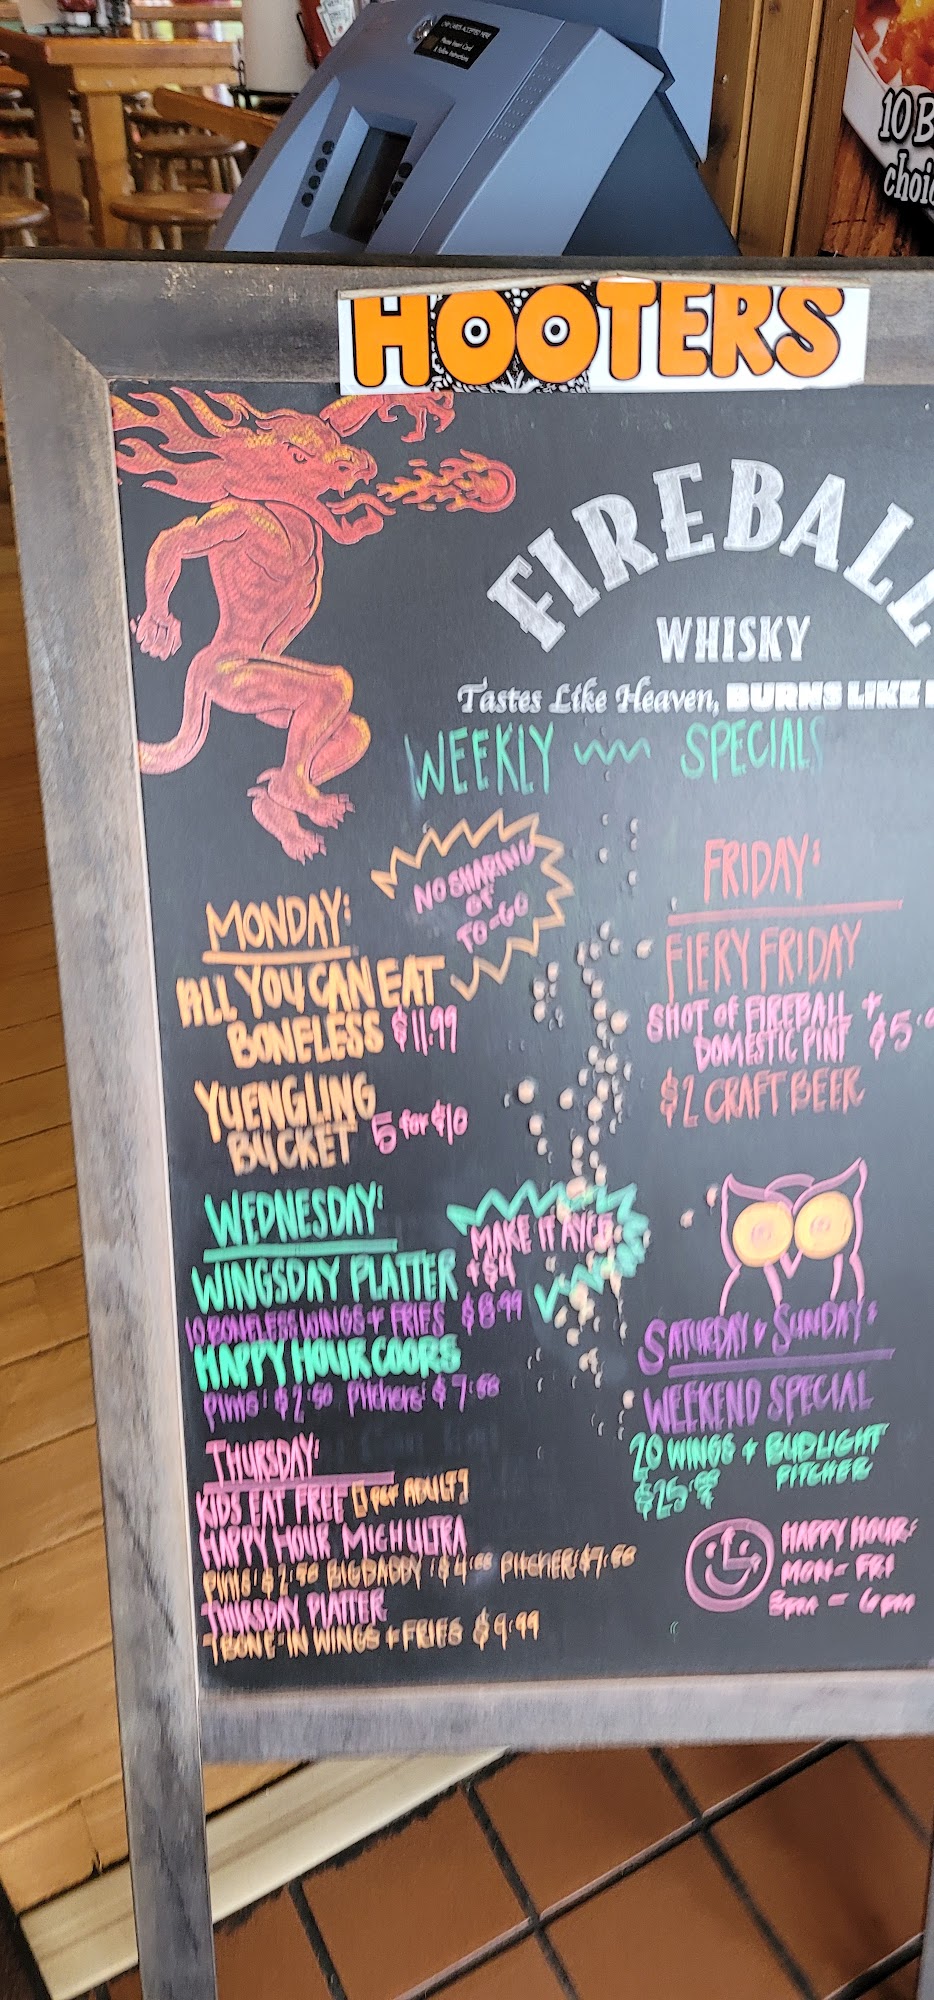 CHIP CARDS ACCEPTED HERE
Please Insert Card
& Follow Instructions
10 B
choic
HOOTERS
FIREBALL
WHISKY
Tastes Like Heaven, BURNS LIKE
WEEKLY SPECIALS
NO SHARING
OR
TO-GO
MONDAY:
ALL YOU CAN EAT
BONELESS $11.99
YUENGLING
BUCKET 5 for $10
WEDNESDAY:
MAKE IT AYCE
+$4
WINGSDAY PLATTER
10 BONELESS WINGS + FRIES $8.99
HAPPY HOUR COORS
PINTS: $2.50 Pitchers: $7.50
THURSDAY:
KIDS EAT FREE [1 per ADULT]
HAPPY HOUR MICH ULTRA
PINTS: $2.50 BIG DADDY: $4.00 PITCHER: $7.50
THURSDAY PLATTER
7 BONE-IN WINGS + FRIES $9.99
FRIDAY:
FIERY FRIDAY
SHOT OF FIREBALL +
DOMESTIC PINT $5.
$2 CRAFT BEER
SATURDAY & SUNDAY:
WEEKEND SPECIAL
20 WINGS + BUD LIGHT
PITCHER
$25.99
HAPPY HOUR:
MON - FRI
3pm - 6pm